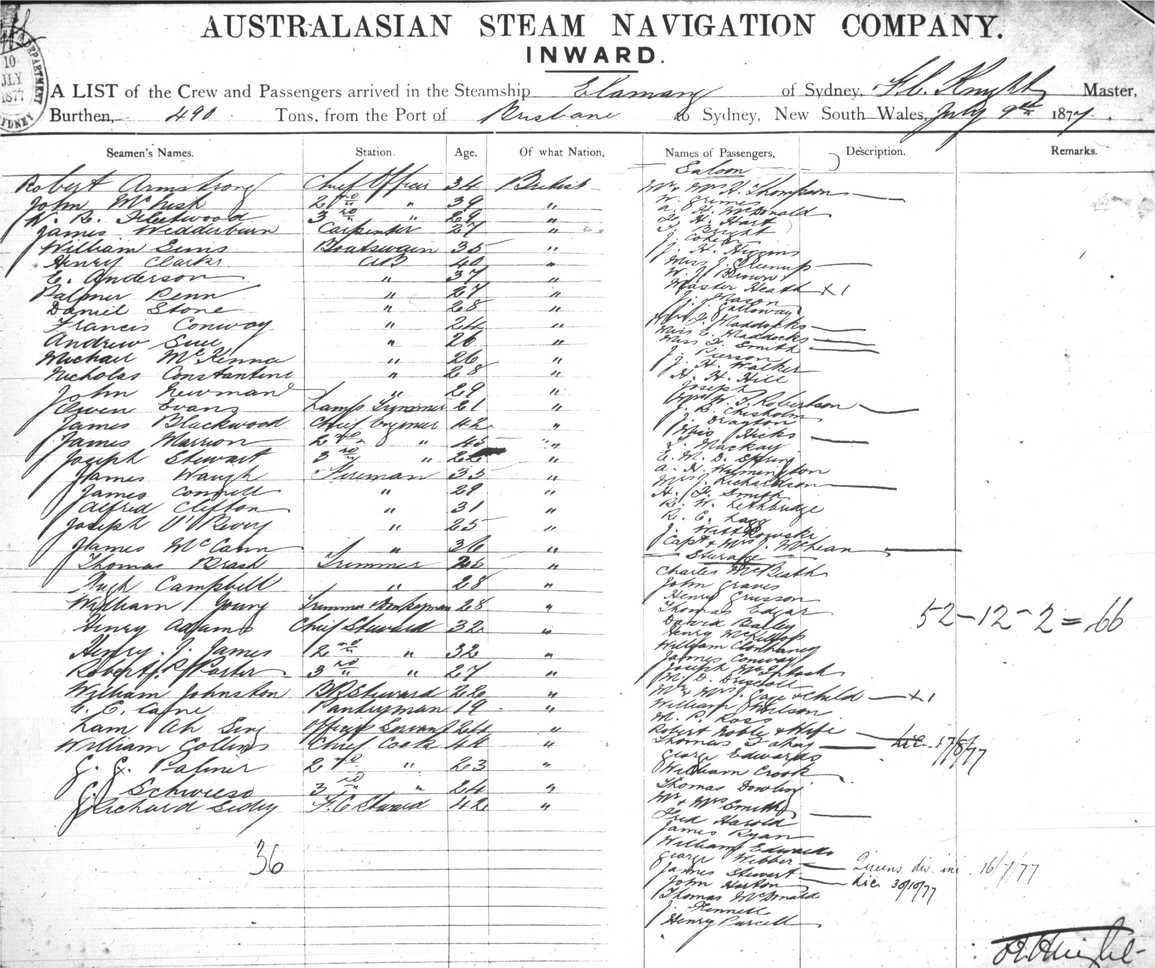 AUSTRALASIAN STEAM NAVIGATION COMPANY.
INWARD.
10
JLY
1877
SYDNEY
DEPARTMENT
A LIST of the Crew and Passengers arrived in the Steamship Elamang of Sydney, Knight Master,
Burthen, 490 Tons, from the Port of Brisbane to Sydney, New South Wales, July 9th 1877.
Seamen's Names. Station. Age. Of what Nation. Names of Passengers. Description. Remarks.
Robert Armstrong Chief Officer 34 British
John McLeish 2nd " 39 "
W. R. Fleetwood 3rd " 29 "
James Wedderburn Carpenter 27 "
William Sims Boatswain 35 "
Henry Clarke AB 40 "
C. Anderson " 37 "
Palmer Penn " 27 "
Daniel Stone " 28 "
Francis Conway " 24 "
Andrew " 26 "
Michael McKenna " 26 "
Nicholas Constantine " 28 "
John Newman " 29 "
Owen Evans Lamp Trimmer 21 "
James Blackwood Chief Engineer 42 "
James Marrion 2nd " 45 "
Joseph Stewart 3rd " "
James Waugh Fireman 35 "
James Connell " 29 "
Alfred Clifton " 31 "
Joseph " 25 "
James McCann " 36 "
Thomas Brash Trimmer "
Hugh Campbell " 28 "
William Young Trimmer & Donkeyman 28 "
Henry Adams Chief Steward 32 "
Henry J. James 2nd " 32 "
Robert R. Porter 3rd " 27 "
William Johnston Steward 22 "
C. E. Cafne Pantryman 19 "
Lam Ah Sing Officers Servant 24 "
William Collins Chief Cook 42 "
G. G. Palmer 2nd " 23 "
Schweiso 3rd " 24 "
Richard F. C. Steward 42 "
36
Saloon
Mr & Mrs Thompson
W. Grimes
McDonald
Hart
Bright
J. Cohen
Higgins
Miss J.
W. J. Brown
Master Heath x 1
J. Galloway
Maddocks
Miss E. Maddocks
Miss Smith
J. Pierson
J. H. Walker
H. H. Hill
Joseph
Robertson
J. B. Chisholm
J. Drayton
Miss Hicks
Mackay
E. M. D.
Miss J. Richardson
H. J. Smith
R. W. Lethbridge
R. C.
J. Wittkowski
Capt & Mrs J. McLean
Steerage
Charles McBeath
John Graves
Henry
Thomas Edgar
David Bailey
Henry McKillop
William
James Conway
Joseph McIntosh
M. D. Driscoll
Mr & Mrs J. child x 1
William Wilson
M. P. Ross
Robert Noble & Wife
Thomas Fahay Lic. 17/8/77
George Edwards
William Crook
Thomas Dowling
Mr & Mrs Smith
Fred Harold
James Ryan
William Edwards
George Webber Queens dis. ini. 16/7/77
James Stewart Lic 30/10/77
John Horton
Thomas McDonald
J. Kennell
Henry Purcell
52-12-2=66
Knight